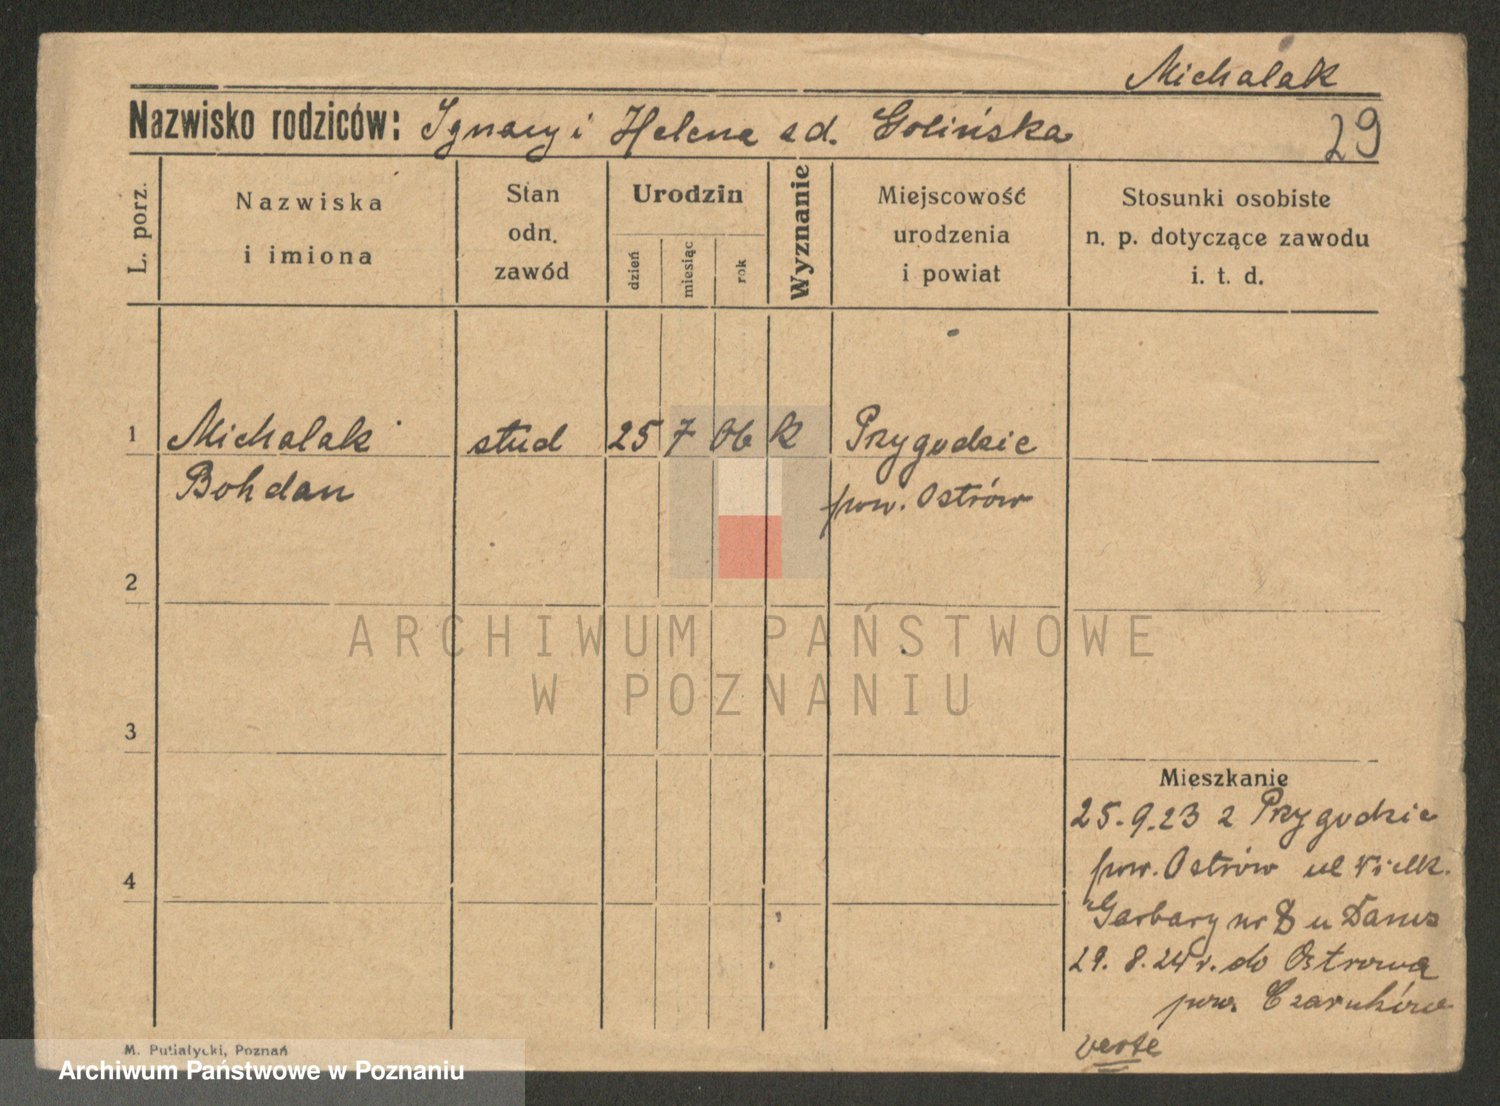 Michalak
Nazwisko rodziców: Ignacy i Helena zd. Golińska
29
L. porz.
Nazwiska
i imiona
Stan
odn.
zawód
Urodzin
dzień
miesiąc
rok
Wyznanie
Miejscowość
urodzenia
i powiat
Stosunki osobiste
n. p. dotyczące zawodu
i. t. d.
1 Michalak stud 25 7 06 k Przygodzie
Bohdan pow. Ostrów
2
3
4
Mieszkanie
25.9.23 z Przygodzie
pow. Ostrów ul Wielk.
Garbary nr 8 u
29. 8. 24 r. do
pow.
verte
M. Putiatycki, Poznań
ARCHIWUM PAŃSTWOWE
W POZNANIU
Archiwum Państwowe w Poznaniu